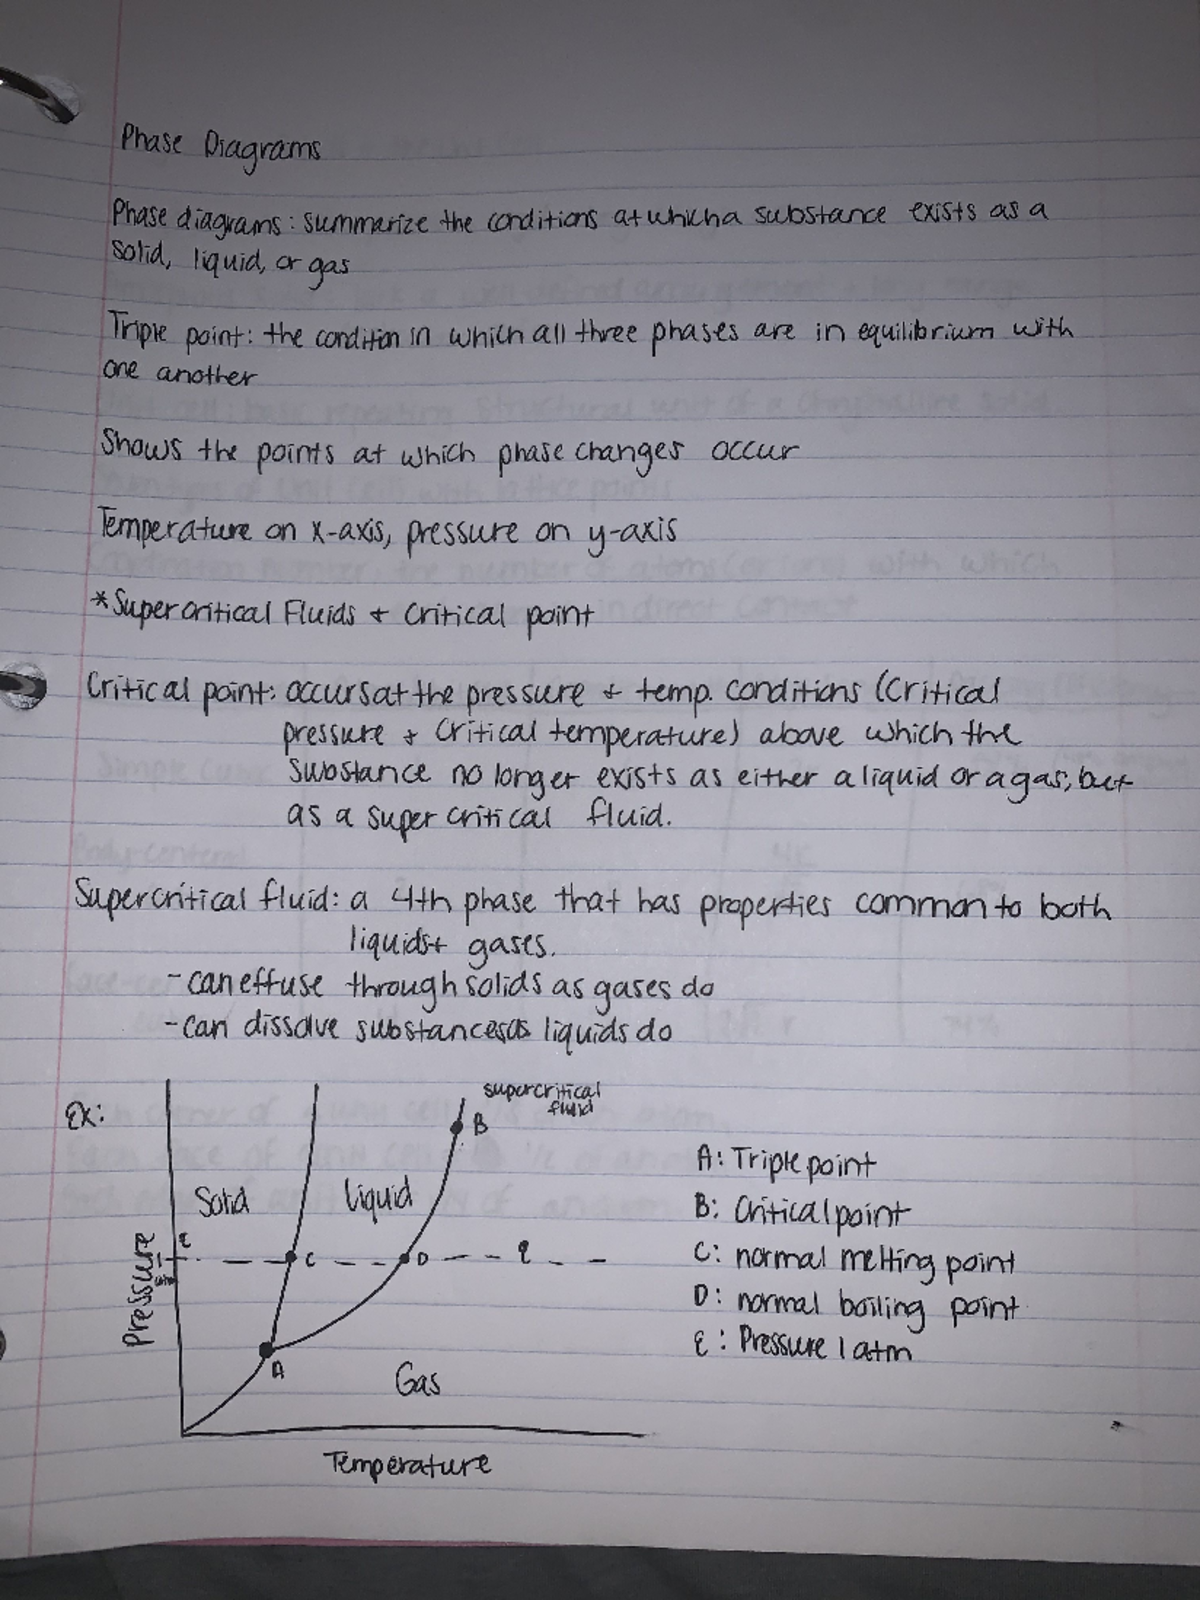 Phase Diagrams
Phase diagrams: summarize the conditions at which a substance exists as a
solid, liquid, or gas
Triple point: the condition in which all three phases are in equilibrium with
one another
Shows the points at which phase changes occur
Temperature on x-axis, pressure on y-axis
*Supercritical Fluids + Critical point
Critical point: occurs at the pressure + temp. conditions (Critical
pressure + Critical temperature) above which the
substance no longer exists as either a liquid or a gas, but
as a super critical fluid.
Supercritical fluid: a 4th phase that has properties common to both
liquids + gases.
- can effuse through solids as gases do
- can dissolve substances as liquids do
Ex:
supercritical
fluid
B
Solid
liquid
E
C
D
E
A
Gas
Pressure
Temperature
A: Triple point
B: Critical point
C: normal melting point
D: normal boiling point
E: Pressure 1 atm